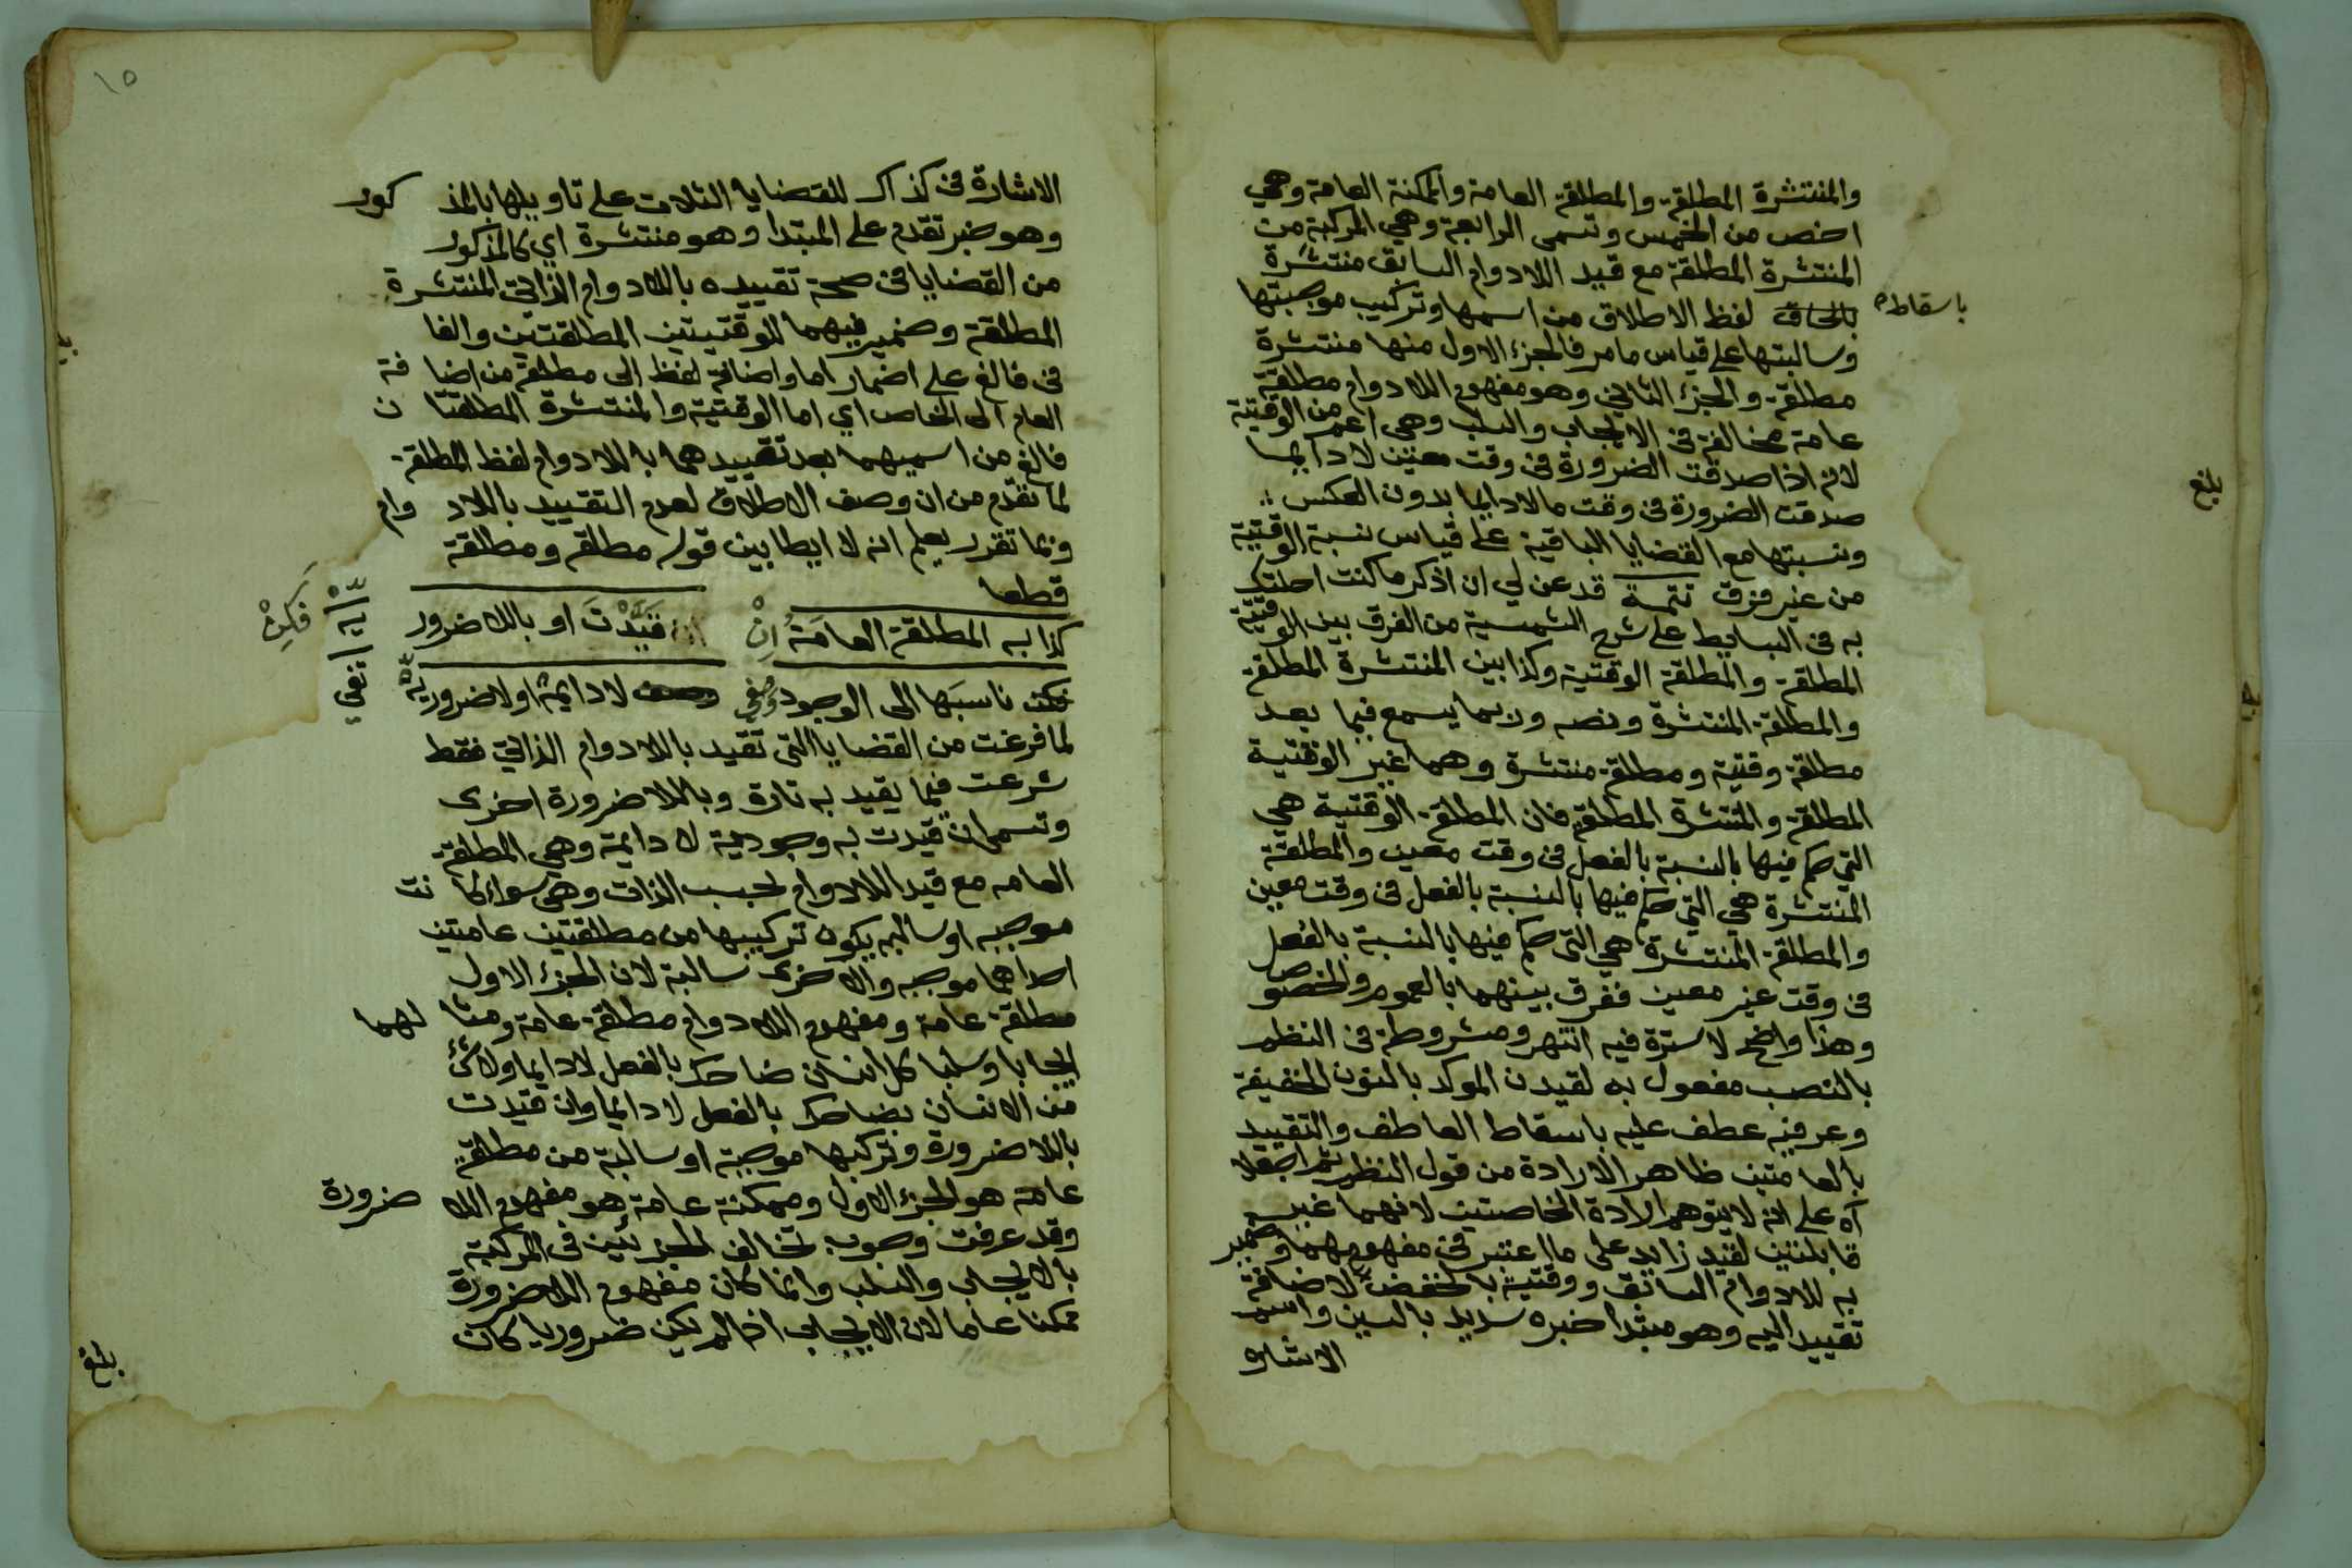 والمنتشرة المطلقة والمطلقة العامة والممكنة العامة وهي
اخص من الخمس وتسمى الرابعة وهي المركبة من
المنتشرة المطلقة مع قيد اللادوام السابق منتشرة
باسقاط
لفظ الاطلاق من اسمها وتركيب موجبتها
وسالبتها على قياس مامر فالجزء الاول منها منتشرة
مطلقة والجزء الثاني وهو مفهوم اللادوام مطلقة
عامة مخالفة في الايجاب والسلب وهي اعم من الوقتية
لانه اذا صدقت الضرورة في وقت معين لا دايما
صدقت الضرورة في وقت ما لادايما بدون العكس
ونسبتها مع القضايا الباقية على قياس نسبة الوقتية
من غير فرق تتمة قد عن لي ان اذكر ما كنت احلتك
به في البسايط على شرح الشمسية من الفرق بين الوقتية
المطلقة والمطلقة الوقتية وكذا بين المنتشرة المطلقة
والمطلقة المنتشرة ونصه وربما يسمع فيما بعد
مطلقة وقتية ومطلقة منتشرة وهما غير الوقتية
المطلقة والمنتشرة المطلقة فان المطلقة الوقتية هي
التي حكم فيها بالنسبة بالفعل في وقت معين والمطلقة
المنتشرة هي التي حكم فيها بالنسبة بالفعل في وقت معين
والمطلقة المنتشرة هي التي حكم فيها بالنسبة بالفعل
في وقت غير معين ففرق بينهما بالعموم والخصوص
وهذا واضح لا سترة فيه انتهى ومشروطة في النظم
بالنصب مفعول به لقيدن الموكد بالنون الخفيفة
وعرفية عطف عليه باسقاط العاطف والتقييد
بالعامتين ظاهر الارادة من قول النظم ثم اجعلا
اه على انه لا يتوهم ارادة الخاصتين لانهما غير
قابلتين لقيد زايد على ما اعتبر في مفهومهما وضمير
به للادوام السابق ووقتية بالخفض لاضافة
تقييد اليه وهو مبتدا خبره سديد بالسين واسم
الاشاره
بلغ
١٥
الاشارة في كذاك للقضايا الثلاث على تاويلها بالمذكور
وهو خبر تقدم على المبتدا وهو منتشرة اي كالمذكور
من القضايا في صحة تقييده باللادوام الذاتي المنتشرة
المطلقة وضمير فيهما للوقتيتين المطلقتين والفا
في فالغ على اضمار اما واضافة لفظ الى مطلقة من اضافة
العام الى الخاص اي اما الوقتية والمنتشرة المطلقتان
فالغ من اسميهما بعد تقييدهما باللادوام لفظ المطلقة
لما تقدم من ان وصف الاطلاق لعدم التقييد باللادوام
وبما تقرر يعلم انه لا ايطا بين قوله مطلقه ومطلقة
قطعا
كذا به المطلقة العامة ان قيدت او باللاضرورية فكن
ناسبها الى الوجود وصفي لادايمة اولاضرورية تفي
لما فرغت من القضايا التي تقيد باللادوام الذاتي فقط
شرعت فيما يقيد به تارة وباللاضرورة اخرى
وتسمى ان قيدت به وجودية لا دايمة وهي المطلقة
العامه مع قيد اللادوام بحسب الذات وهي سواء كانت
موجبه او سالبه يكون تركيبها من مطلقتين عامتين
احداهما موجبه والاخرى سالبة لان الجزء الاول
مطلقة عامة ومفهوم اللادوام مطلقة عامة ومثالهما
ايجابا وسلبا كل انسان ضاحك بالفعل لادايما ولاشئ
من الانسان بضاحك بالفعل لا دايما وان قيدت
باللاضرورة وتركبها موجبة او سالبة من مطلقة
عامة هو الجزء الاول وممكنة عامة هو مفهوم اللاضرورة
وقد عرفت وجوب تخالف الجزئين في المركبة
بالايجاب والسلب وانما كان مفهوم اللاضرورة
ممكنا عاما لان الايجاب اذا لم يكن ضروريا كان
بلغ